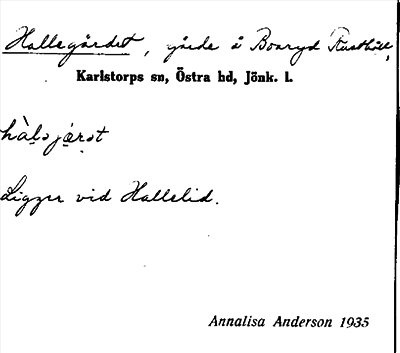 Hallegärdet, gärde å Boaryd Rusthåll,
Karlstorps sn, Östra hd, Jönk. l.
hàlǝjæ̣rǝt
Ligger vid Hallelid.
Annalisa Anderson 1935